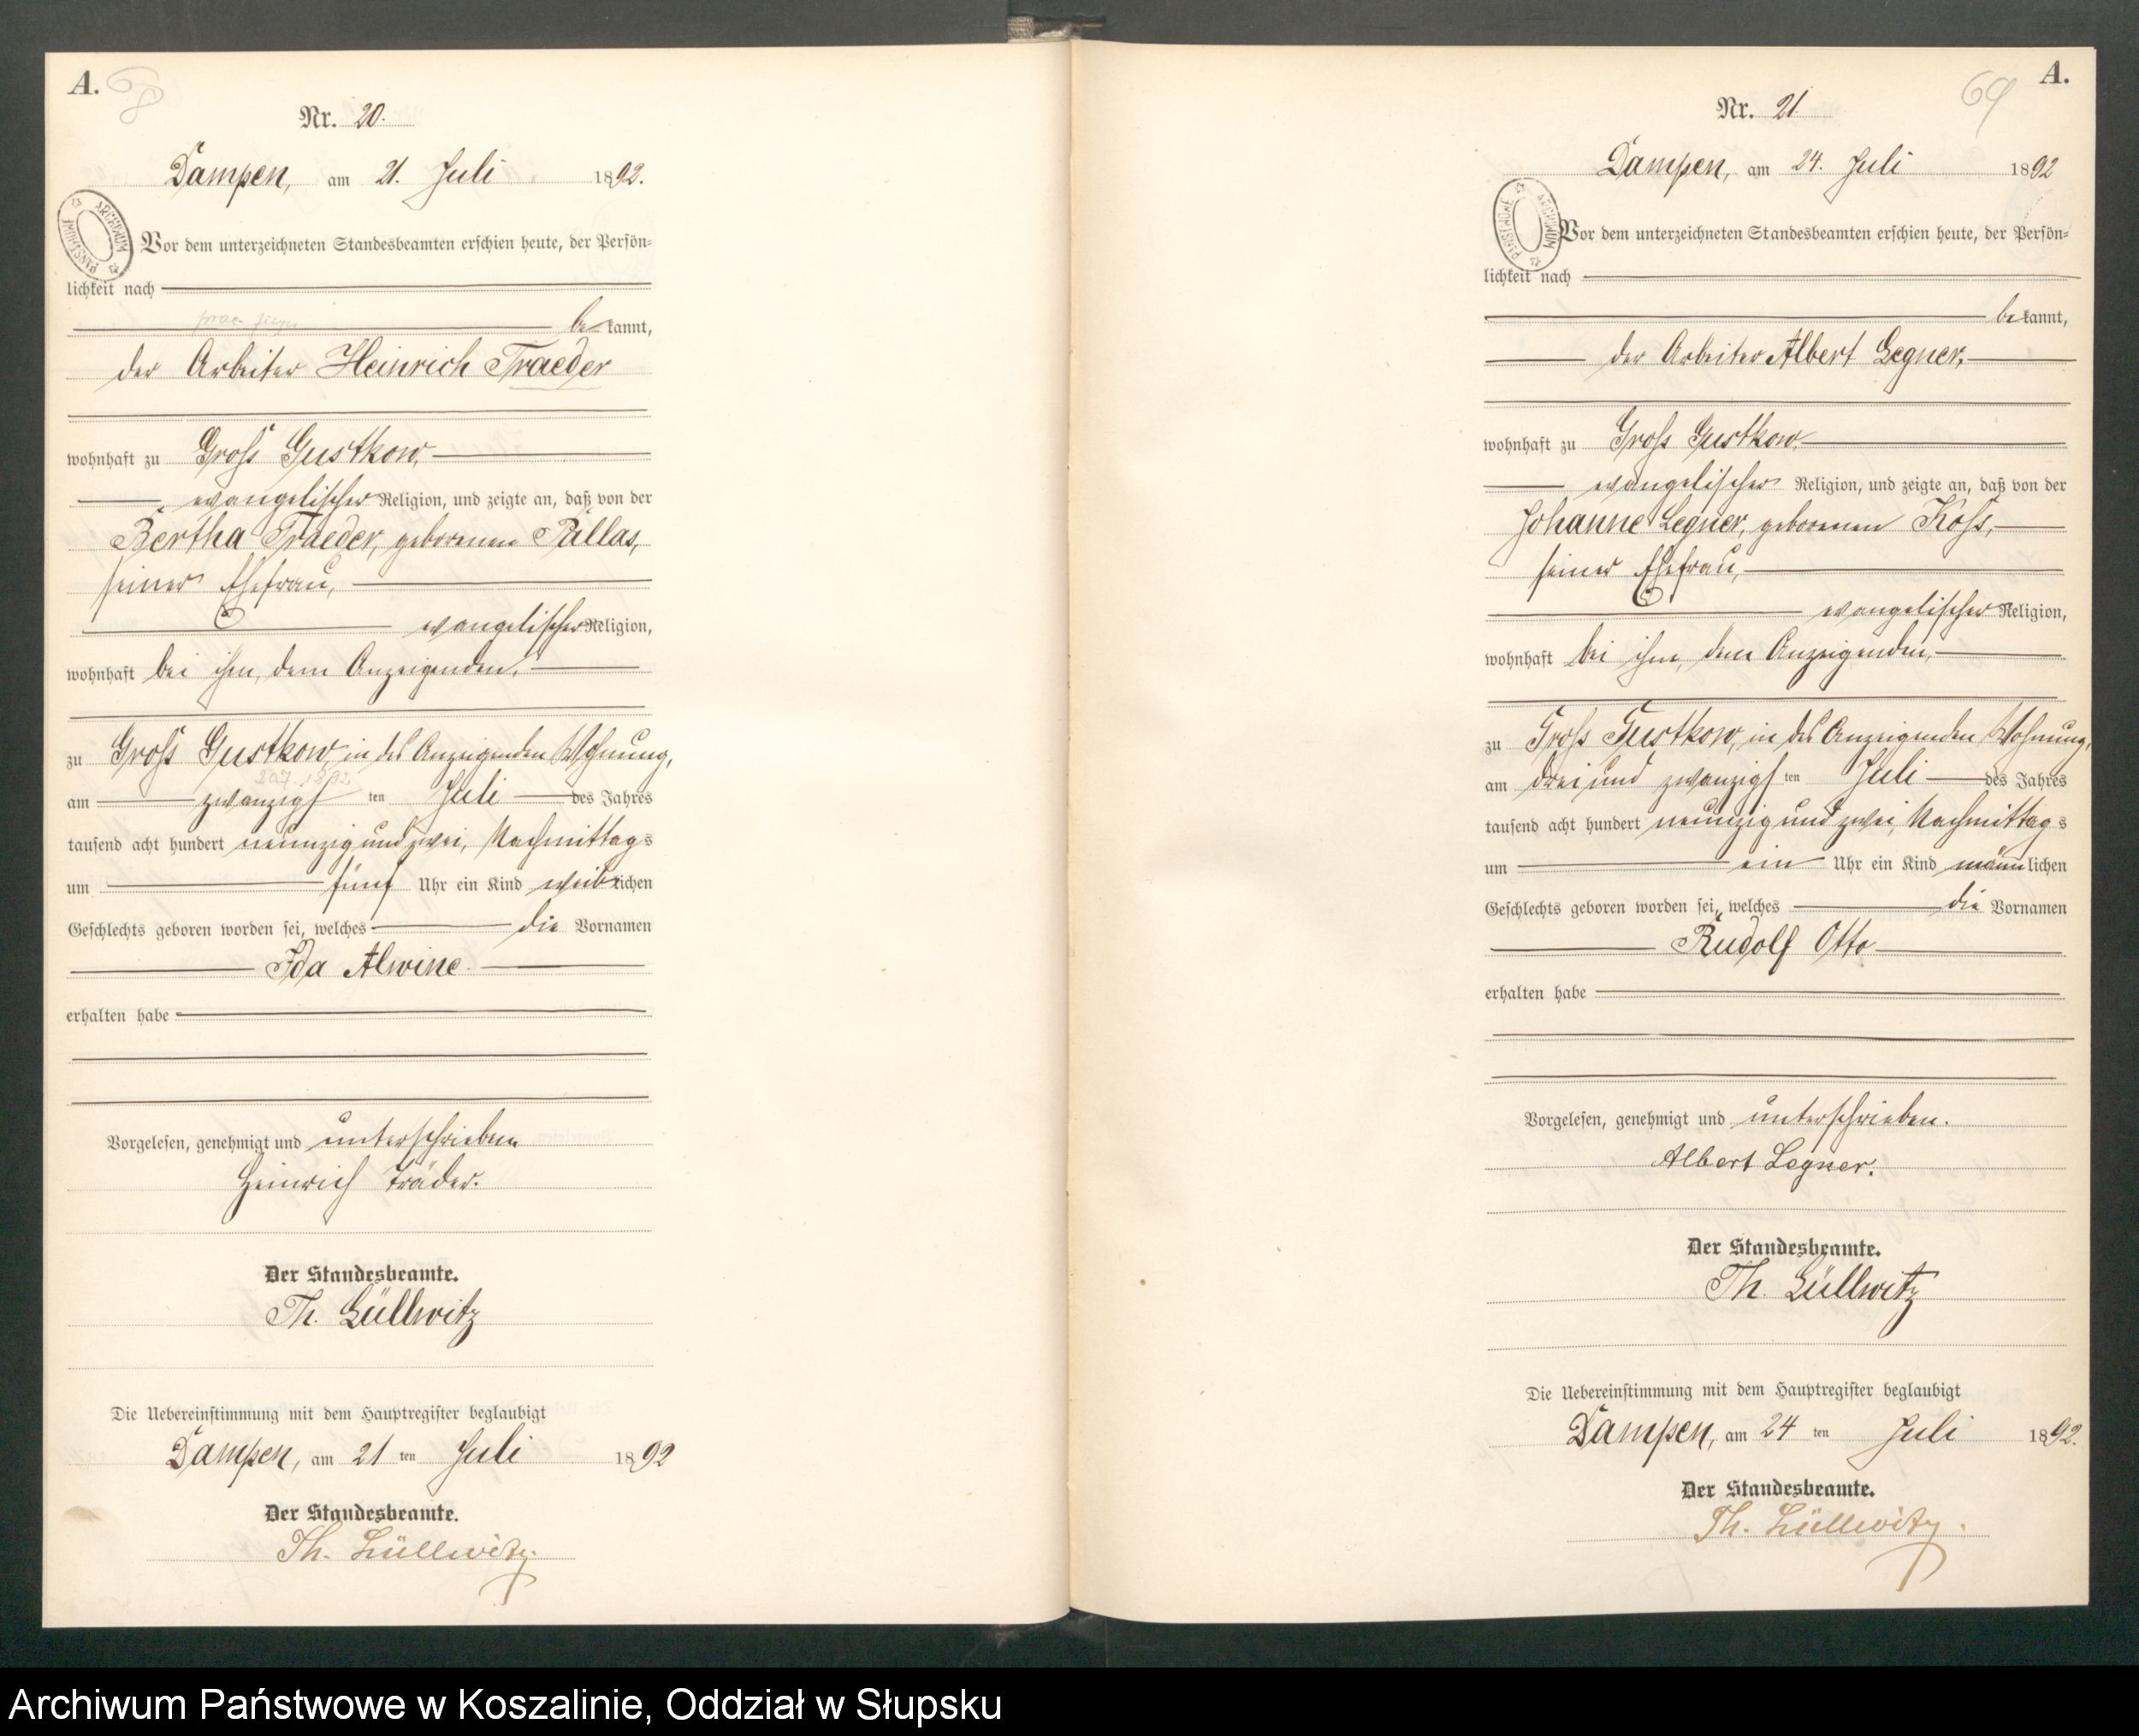 A.
68
Nr. 20.
Dampen, am 21. Juli 1892.
ARCHIWUM PAŃSTWOWE
Vor dem unterzeichneten Standesbeamten erschien heute, der Persön-
lichkeit nach
bekannt,
der Arbeiter Heinrich Traeder
wohnhaft zu Gross Gustkow,
evangelischer Religion, und zeigte an, daß von der
Bertha Traeder, geborenen Pallas,
seiner Ehefrau,
evangelischer Religion,
wohnhaft bei ihm, dem Anzeigenden,
zu Gross Gustkow, in des Anzeigenden Wohnung,
20.7.1892
am zwanzigsten Juli des Jahres
tausend acht hundert neunzig und zwei, Nachmittags
um fünf Uhr ein Kind weiblichen
Geschlechts geboren worden sei, welches die Vornamen
Ida Alwine.
erhalten habe
Vorgelesen, genehmigt und unterschrieben
Heinrich Träder.
Der Standesbeamte.
Th. Lüllwitz
Die Uebereinstimmung mit dem Hauptregister beglaubigt
Dampen, am 21 ten Juli 1892
Der Standesbeamte.
Th. Lüllwitz.
A.
69
Nr. 21.
Dampen, am 24. Juli 1892
ARCHIWUM PAŃSTWOWE
Vor dem unterzeichneten Standesbeamten erschien heute, der Persön-
lichkeit nach
bekannt,
der Arbeiter Albert Legner,
wohnhaft zu Gross Gustkow
evangelischer Religion, und zeigte an, daß von der
Johanne Legner, geborenen Koss,
seiner Ehefrau,
evangelischer Religion,
wohnhaft bei ihm, dem Anzeigenden,
zu Gross Gustkow, in des Anzeigenden Wohnung,
am drei und zwanzigsten Juli des Jahres
tausend acht hundert neunzig und zwei, Nachmittags
um ein Uhr ein Kind männlichen
Geschlechts geboren worden sei, welches die Vornamen
Rudolf Otto
erhalten habe
Vorgelesen, genehmigt und unterschrieben.
Albert Legner.
Der Standesbeamte.
Th. Lüllwitz
Die Uebereinstimmung mit dem Hauptregister beglaubigt
Dampen, am 24 ten Juli 1892.
Der Standesbeamte.
Th. Lüllwitz.
Archiwum Państwowe w Koszalinie, Oddział w Słupsku